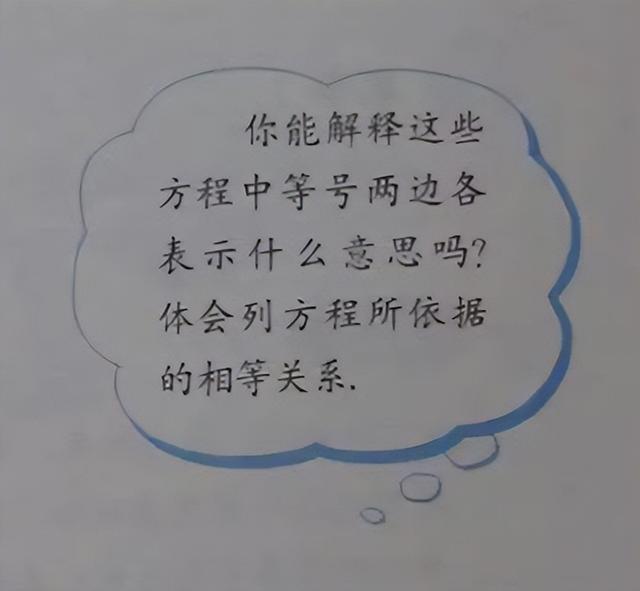 你能解释这些
方程中等号两边各
表示什么意思吗?
体会列方程所依据
的相等关系.